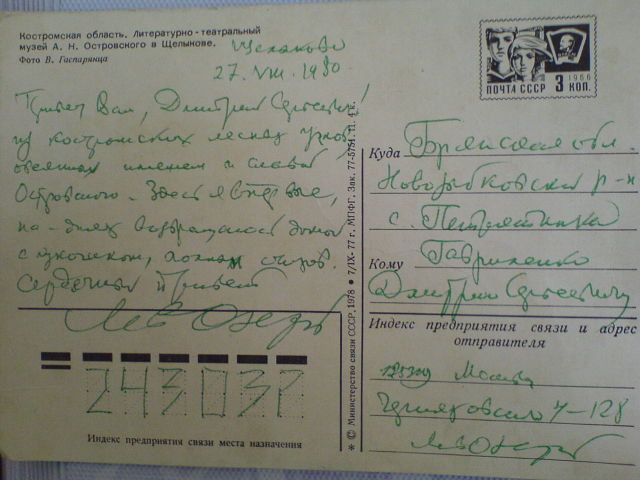 Костромская область. Литературно-театральный
музей А. Н. Островского в Щелыкове.
Фото В. Гаспарянца
Щелыково
27. VIII. 1980
Привет Вам, Дмитрий Сергеевич!
Из костромских лесных
овеянных именем и славой
Островского. Здесь я впервые,
на-днях возвращаюсь домой
с лукошком, полным стихов.
Сердечный привет
Лев Озеров
243037
Индекс предприятия связи места назначения
* © Министерство связи СССР, 1978 • 7/IX-77 г. МПФГ. Зак. 77-5751. П. 4 к.
1966
ПОЧТА СССР 3 КОП.
Куда Брянская обл.
Новозыбковский р-н
с.
Кому Гавриленко
Дмитрию Сергеевичу
Индекс предприятия связи и адрес
отправителя
Москва
Черняховского 4-128
Лев Озеров